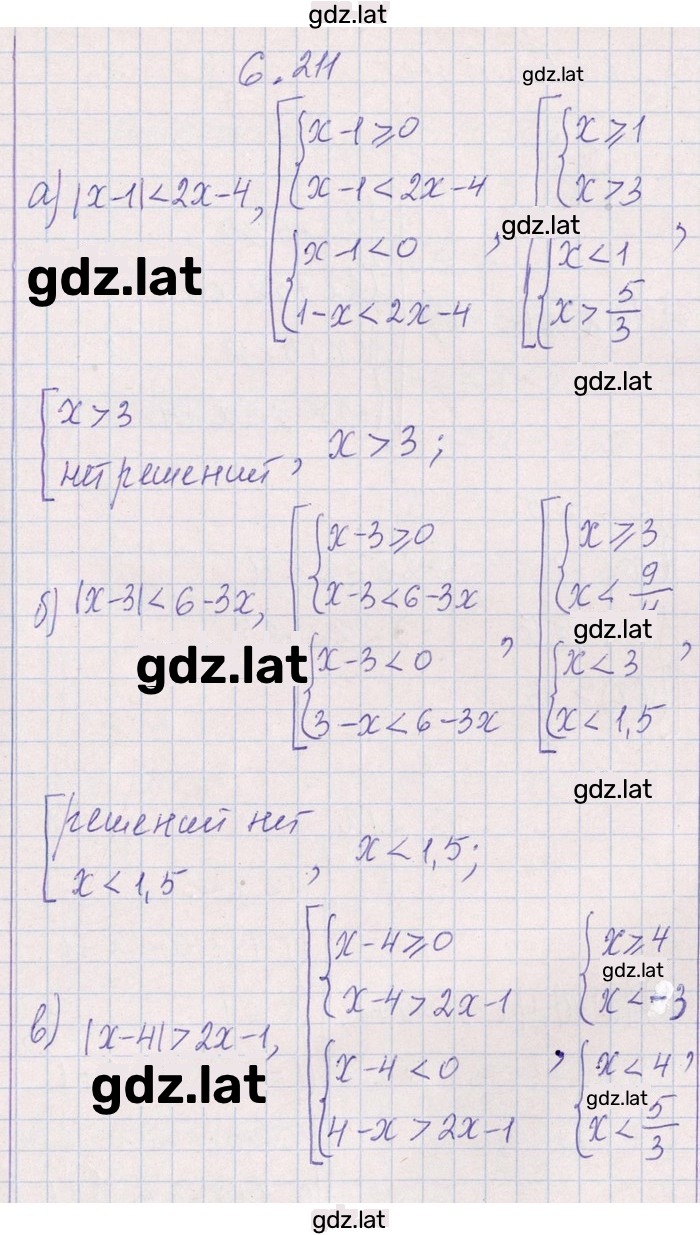 gdz.lat
6.211
gdz.lat
а) |x-1|<2x-4, [ { x-1⩾0
x-1<2x-4
{ x-1<0
1-x<2x-4 , [ { x⩾1
x>3
gdz.lat
{ x<1
x>5/3 ,
gdz.lat
gdz.lat
[ x>3
нет решений , x>3;
б) |x-3|<6-3x, [ { x-3⩾0
x-3<6-3x
{ x-3<0
3-x<6-3x , [ { x⩾3
x<9/
gdz.lat
{ x<3
x<1,5 ,
gdz.lat
gdz.lat
[ решений нет
x<1,5 , x<1,5;
в) |x-4|>2x-1, [ { x-4⩾0
x-4>2x-1
{ x-4<0
4-x>2x-1 , { x⩾4
gdz.lat
x<-3
{ x<4 ,
gdz.lat
x<5/3
gdz.lat
gdz.lat